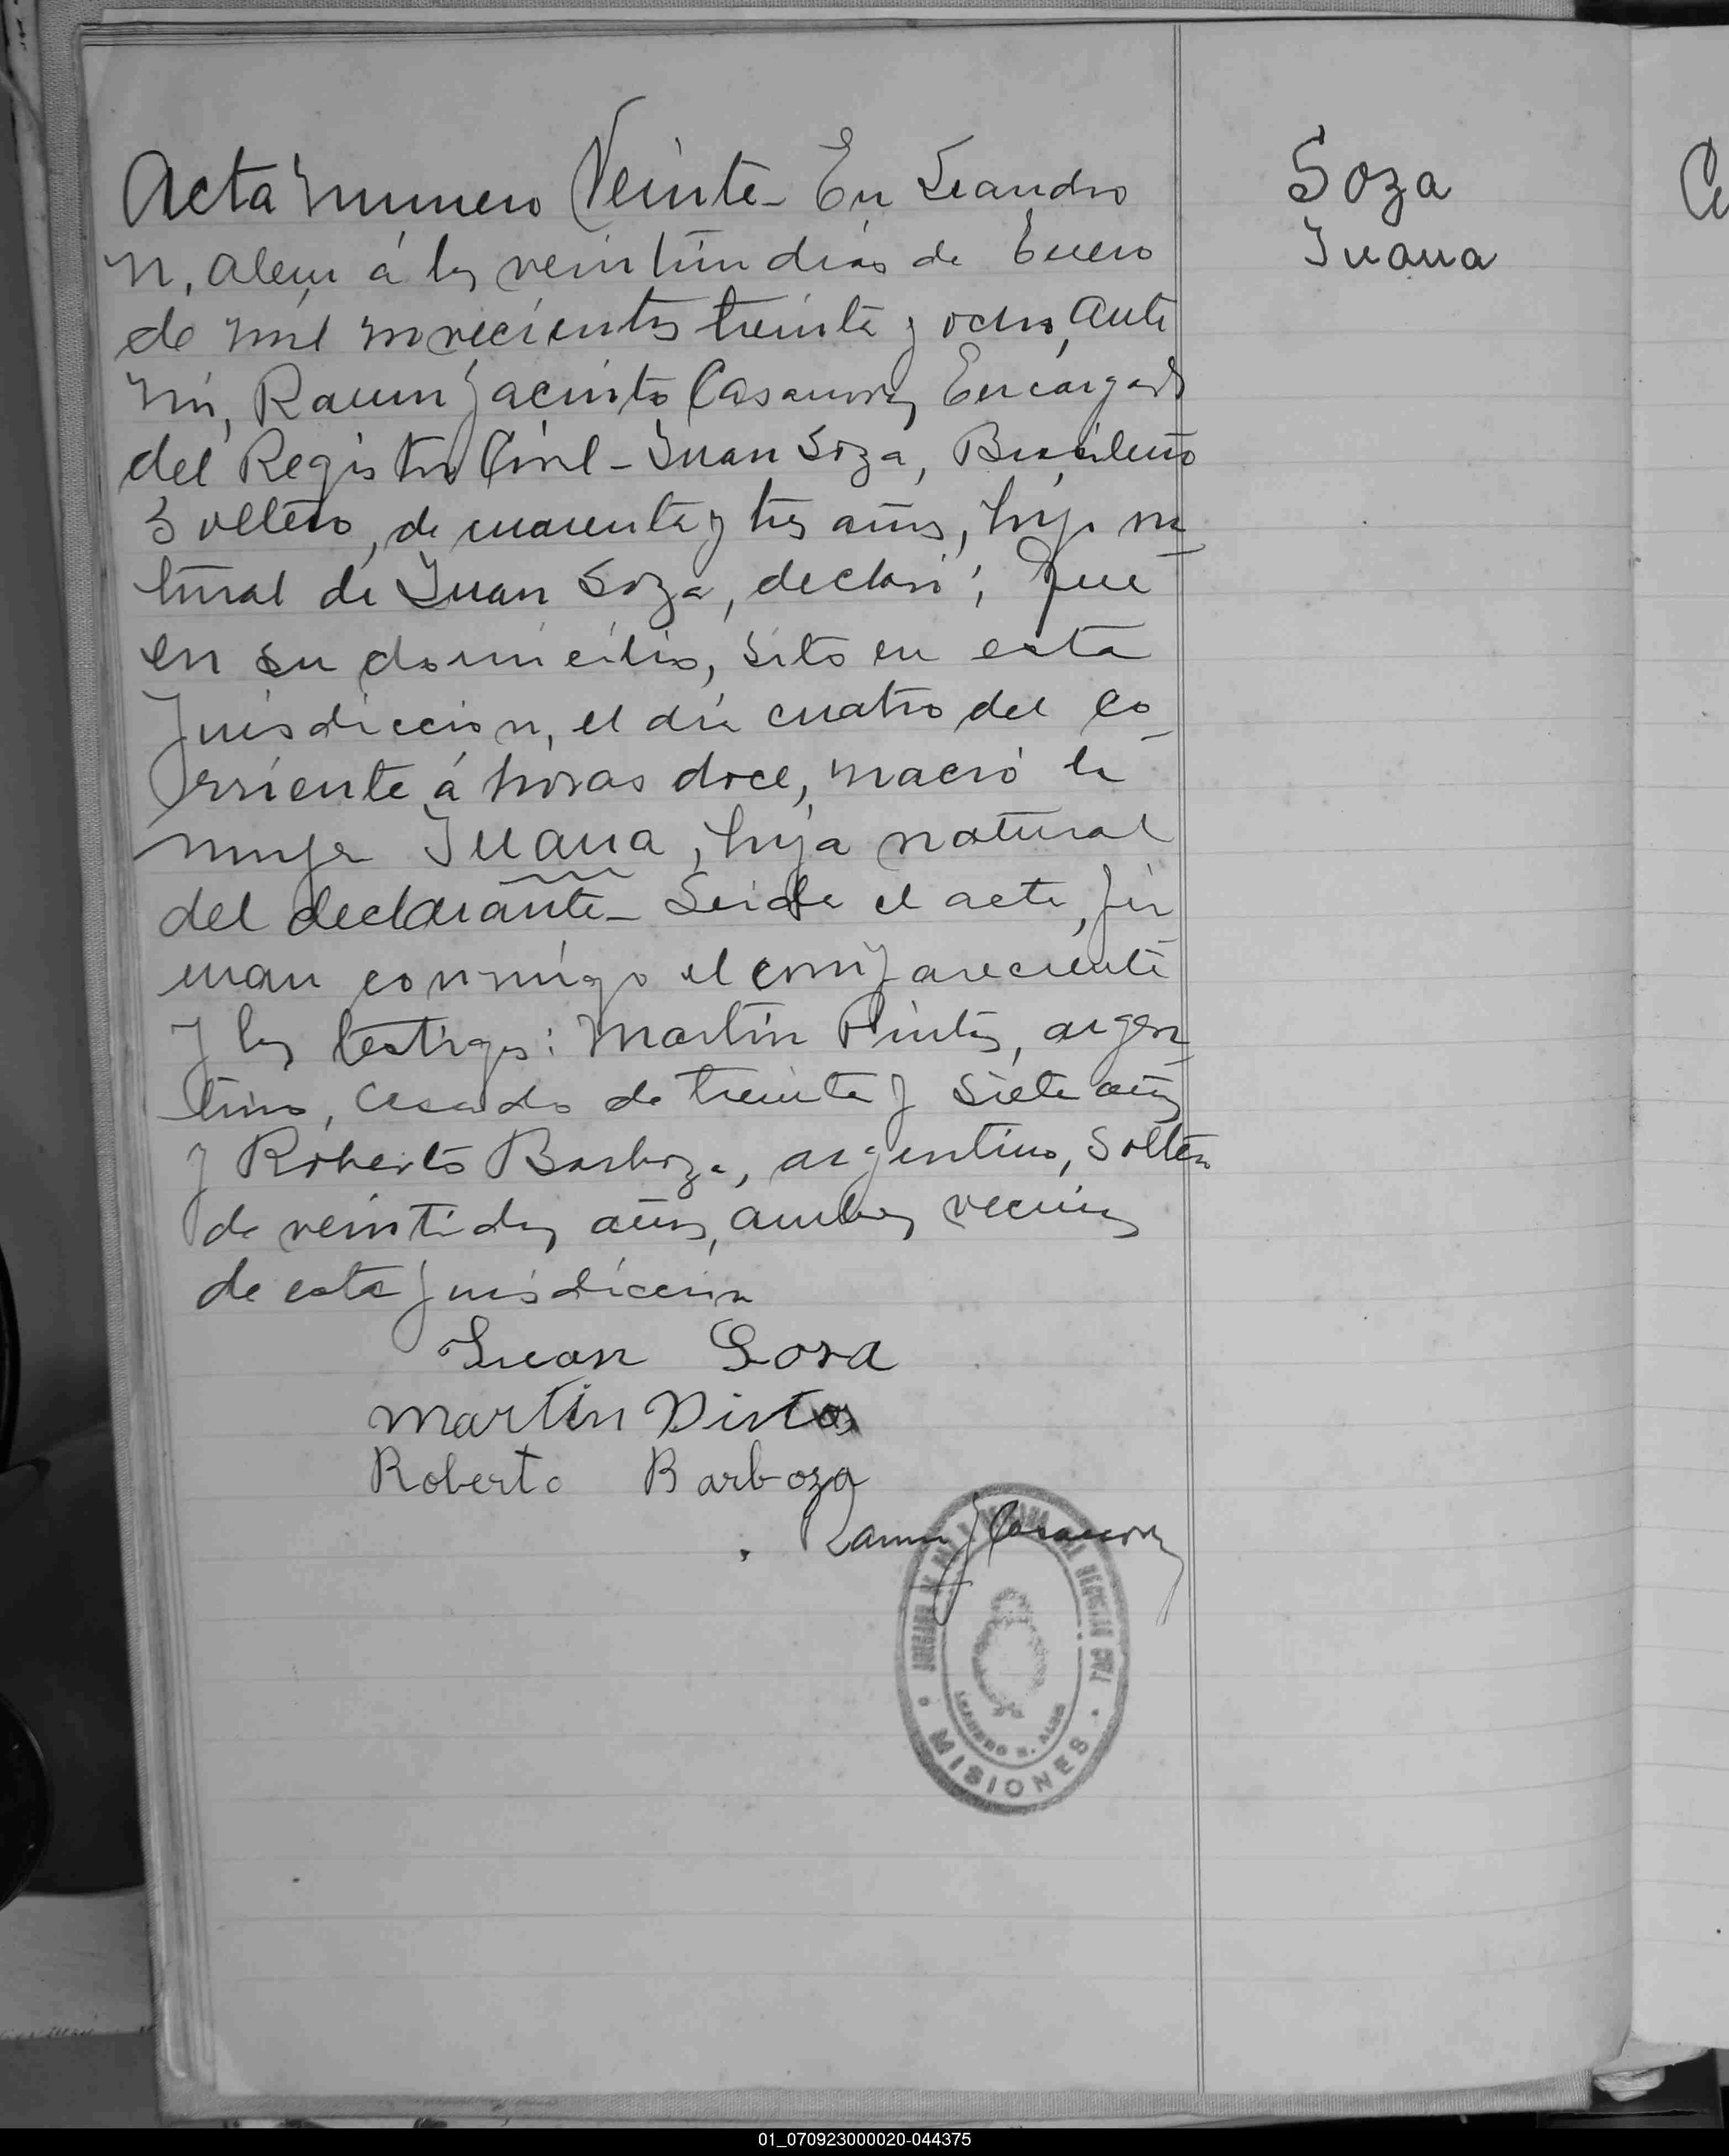 Acta Numero Veinte - En Leandro
N. Alem á los veintiun dias de Enero
de mil novecientos treinta y ocho, Ante
mi, Ramon Jacinto Casanova, Encargado
del Registro Civil - Juan Soza, Brasileño
Soltero, de cuarenta y tres años, hijo na
tural de Juan Soza, declaró; Que
en su domicilio, sito en esta
Jurisdiccion, el dia cuatro del co
rriente á horas doce, nació la
mujer Juana, hija natural
del declarante - Leida el acta, fir
man conmigo el compareciente
y los testigos: Martin Pintos, argen
tino, casado de treinta y siete años
y Roberto Barboza, argentino, Soltero
de veintidos años, ambos vecinos
de esta jurisdiccion
Juan Sosa
Martin Pintos
Roberto Barboza
Ramon J Casanova
JUZGADO DE PAZ REGISTRO CIVIL
LEANDRO N. ALEM
MISIONES
Soza
Juana
01_070923000020-044375